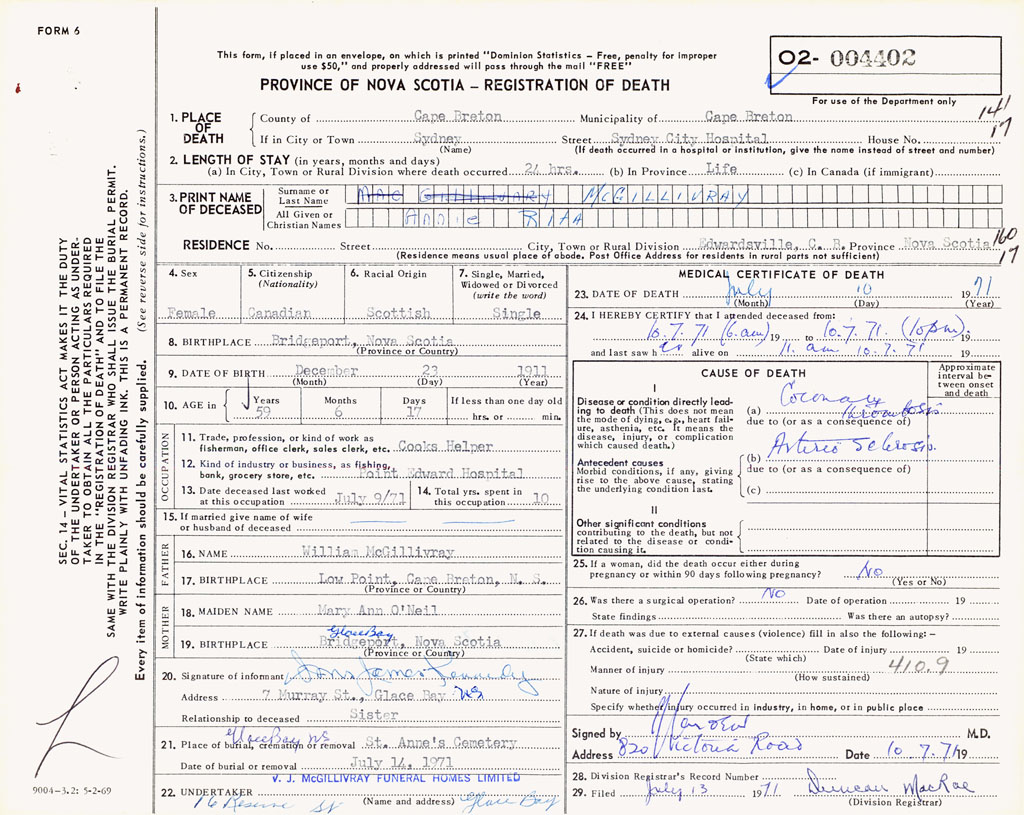 FORM 6
This form, if placed in an envelope, on which is printed "Dominion Statistics – Free, penalty for improper
use $50," and properly addressed will pass through the mail "FREE"
O2- 004402
PROVINCE OF NOVA SCOTIA – REGISTRATION OF DEATH
For use of the Department only
141
17
1. PLACE OF DEATH
County of Cape Breton Municipality of Cape Breton
If in City or Town Sydney Street Sydney City Hospital House No.
(Name) (If death occurred in a hospital or institution, give the name instead of street and number)
2. LENGTH OF STAY (in years, months and days)
(a) In City, Town or Rural Division where death occurred 24 hrs. (b) In Province Life (c) In Canada (if immigrant)
3. PRINT NAME OF DECEASED
Surname or Last Name MAC GILLIVARY McGILLIVRAY
All Given or Christian Names ANNIE RITA
RESIDENCE No. Street City, Town or Rural Division Edwardsville, C. B. Province Nova Scotia
160
17
(Residence means usual place of abode. Post Office Address for residents in rural parts not sufficient)
4. Sex
Female
5. Citizenship (Nationality)
Canadian
6. Racial Origin
Scottish
7. Single, Married, Widowed or Divorced (write the word)
Single
8. BIRTHPLACE Bridgeport, Nova Scotia
(Province or Country)
9. DATE OF BIRTH December 23 1911
(Month) (Day) (Year)
10. AGE in Years Months Days If less than one day old
59 6 17 hrs. or min.
OCCUPATION
11. Trade, profession, or kind of work as
fisherman, office clerk, sales clerk, etc. Cooks Helper
12. Kind of industry or business, as fishing,
bank, grocery store, etc. Point Edward Hospital
13. Date deceased last worked at this occupation July 9/71
14. Total yrs. spent in this occupation 10
15. If married give name of wife
or husband of deceased
FATHER
16. NAME William McGillivray
17. BIRTHPLACE Low Point, Cape Breton, N. S.
(Province or Country)
MOTHER
18. MAIDEN NAME Mary Ann O'Neil
Glace Bay
19. BIRTHPLACE Bridgeport, Nova Scotia
(Province or Country)
20. Signature of informant James Kennedy
Address 7 Murray St., Glace Bay NS
Relationship to deceased Sister
Glace Bay NS
21. Place of burial, cremation or removal St. Anne's Cemetery
Date of burial or removal July 14, 1971
V. J. McGILLIVRAY FUNERAL HOMES LIMITED
22. UNDERTAKER 16 Reserve St Glace Bay
(Name and address)
MEDICAL CERTIFICATE OF DEATH
23. DATE OF DEATH July 10 1971
(Month) (Day) (Year)
24. I HEREBY CERTIFY that I attended deceased from:
10.7.71 (6.am) 19 to 10.7.71. (10pm). 19
and last saw her alive on 11. am 10.7.71 19
CAUSE OF DEATH
Approximate interval between onset and death
I
Disease or condition directly leading to death (This does not mean the mode of dying, e.g., heart failure, asthenia, etc. It means the disease, injury, or complication which caused death.)
(a) Coronary thrombosis
due to (or as a consequence of)
(b) Arterio Sclerosis.
Antecedent causes
Morbid conditions, if any, giving rise to the above cause, stating the underlying condition last.
due to (or as a consequence of)
(c)
II
Other significant conditions
contributing to the death, but not related to the disease or condition causing it.
25. If a woman, did the death occur either during
pregnancy or within 90 days following pregnancy? No
(Yes or No)
26. Was there a surgical operation? NO Date of operation 19
State findings Was there an autopsy?
27. If death was due to external causes (violence) fill in also the following: –
Accident, suicide or homicide? Date of injury 19
(State which)
410.9
Manner of injury
(How sustained)
Nature of injury
Specify whether injury occurred in industry, in home, or in public place
Signed by M.D.
Address 820 Victoria Road Date 10 7.71 19
28. Division Registrar's Record Number
29. Filed July 13 1971 Duncan MacRae
(Division Registrar)
SEC. 14 – VITAL STATISTICS ACT MAKES IT THE DUTY
OF THE UNDERTAKER OR PERSON ACTING AS UNDER-
TAKER TO OBTAIN ALL THE PARTICULARS REQUIRED
IN THE "REGISTRATION OF DEATH" AND TO FILE THE
SAME WITH THE DIVISION REGISTRAR WHO SHALL ISSUE THE BURIAL PERMIT.
WRITE PLAINLY WITH UNFADING INK. THIS IS A PERMANENT RECORD.
Every item of information should be carefully supplied. (See reverse side for instructions.)
9004-3.2: 5-2-69